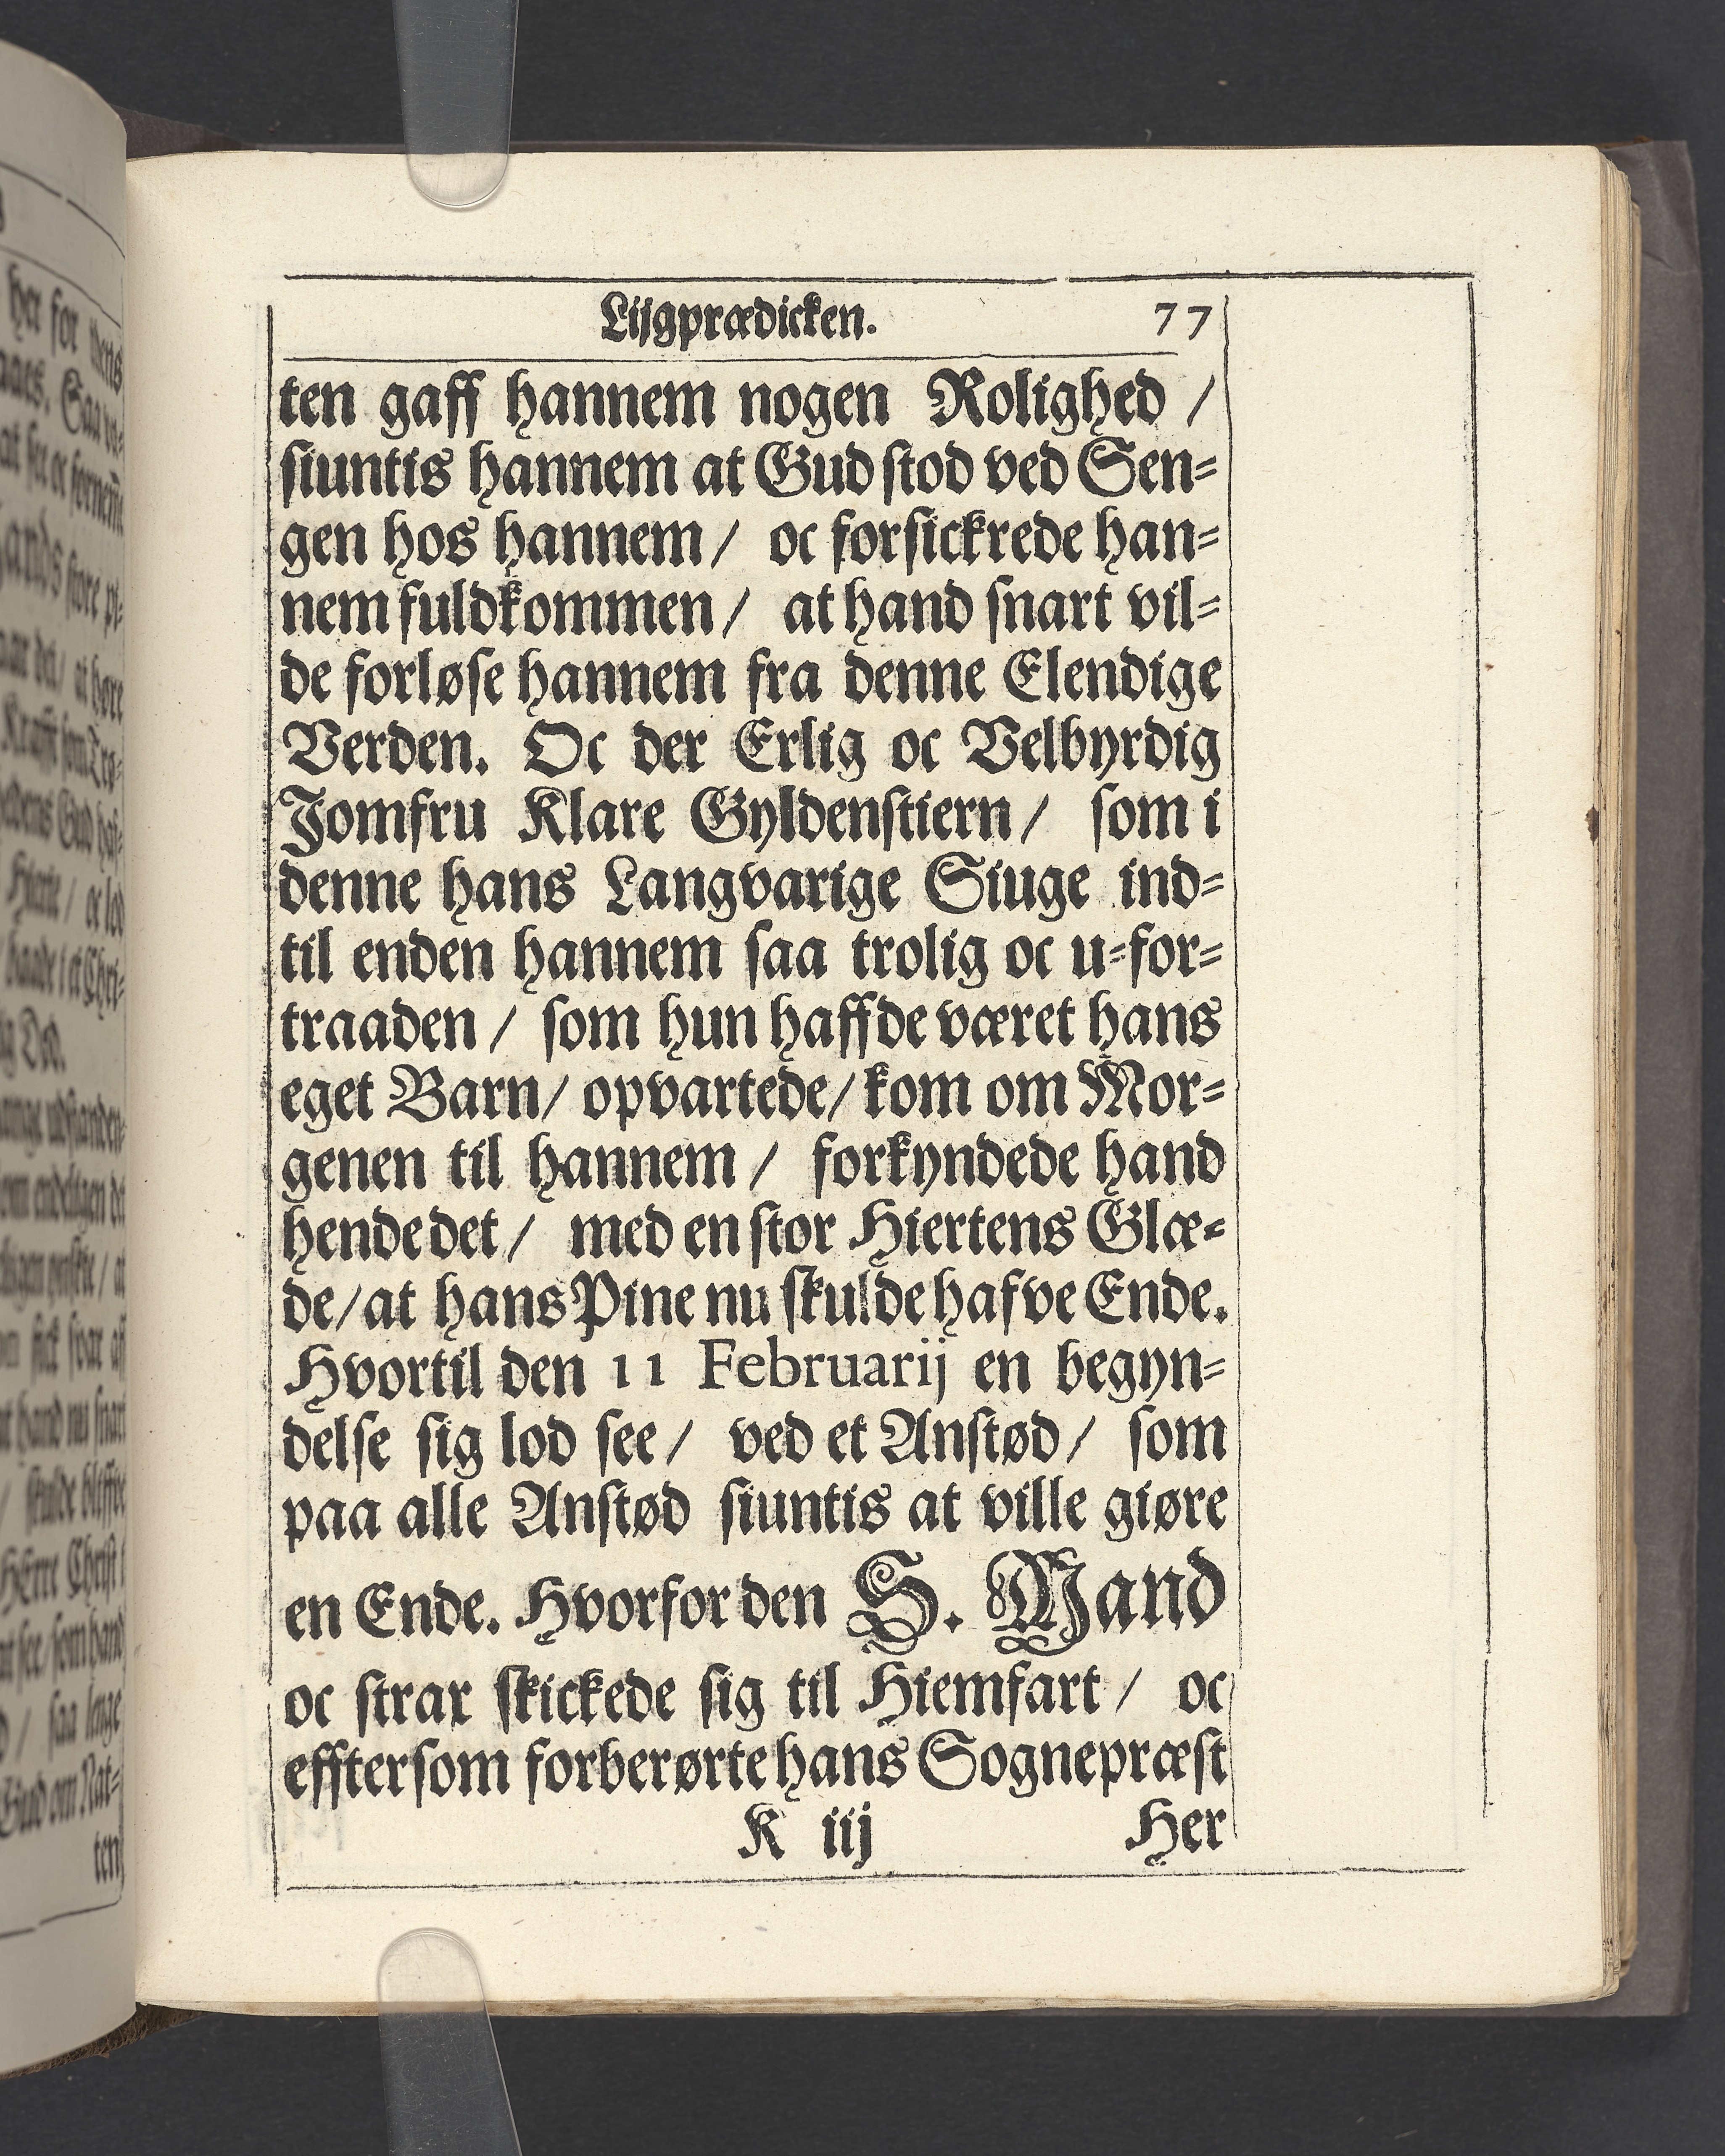 Lijgprædicken. 77
ten gaff hannem nogen Rolighed /
siuntis hannem at Gud stod ved Sen-
gen hos hannem / oc forsickrede han-
nem fuldkommen / at hand snart vil-
de forløse hannem fra denne Elendige
Verden. Oc der Erlig oc Velbyrdig
Jomfru Klare Gyldenstiern / som i
denne hans Langvarige Siuge ind-
til enden hannem saa trolig oc u-for-
traaden / som hun haffde været hans
eget Barn / opvartede / kom om Mor-
genen til hannem / forkyndede hand
hende det / med en stor Hiertens Glæ-
de / at hans Pine nu skulde hafve Ende.
Hvortil den 11 Februarij en begyn-
delse sig lod see / ved et Anstød / som
paa alle Anstød siuntis at ville giøre
en Ende. Hvorfor den S. Mand
oc strax skickede sig til Hiemfart / oc
efftersom forberørte hans Sognepræst
K iij Her